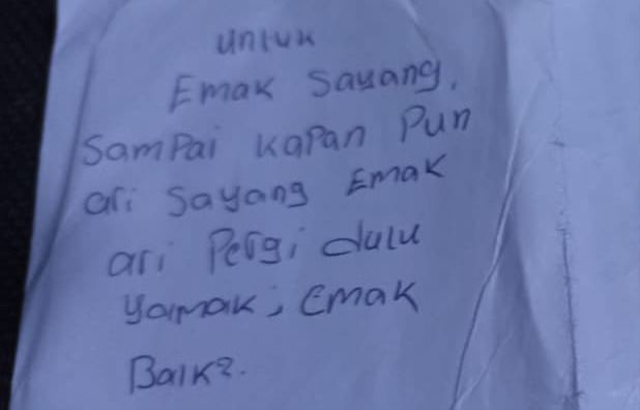 untuk
Emak Sayang,
Sampai kapan Pun
ari Sayang Emak
ari Pergi dulu
yamak, Emak
Baik2.